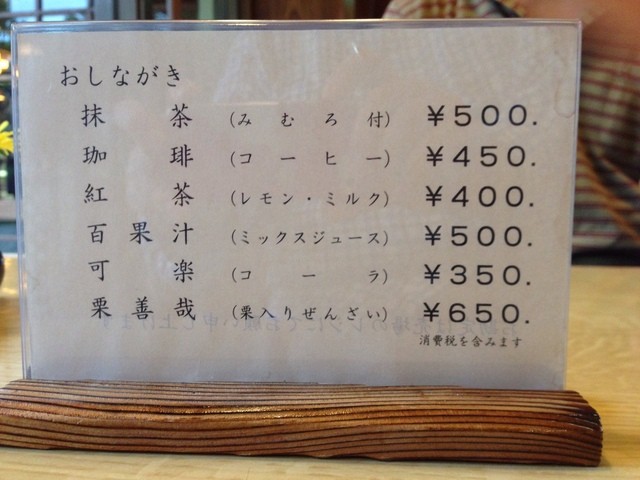 おしながき
抹茶 (みむろ付) ￥500.
珈琲 (コーヒー) ￥450.
紅茶 (レモン・ミルク) ￥400.
百果汁 (ミックスジュース) ￥500.
可楽 (コーラ) ￥350.
栗善哉 (栗入りぜんざい) ￥650.
消費税を含みます